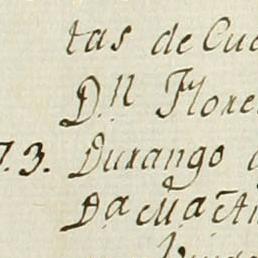 tas de Cue
D.n Flore
7.3. Durango
D.a M.a An